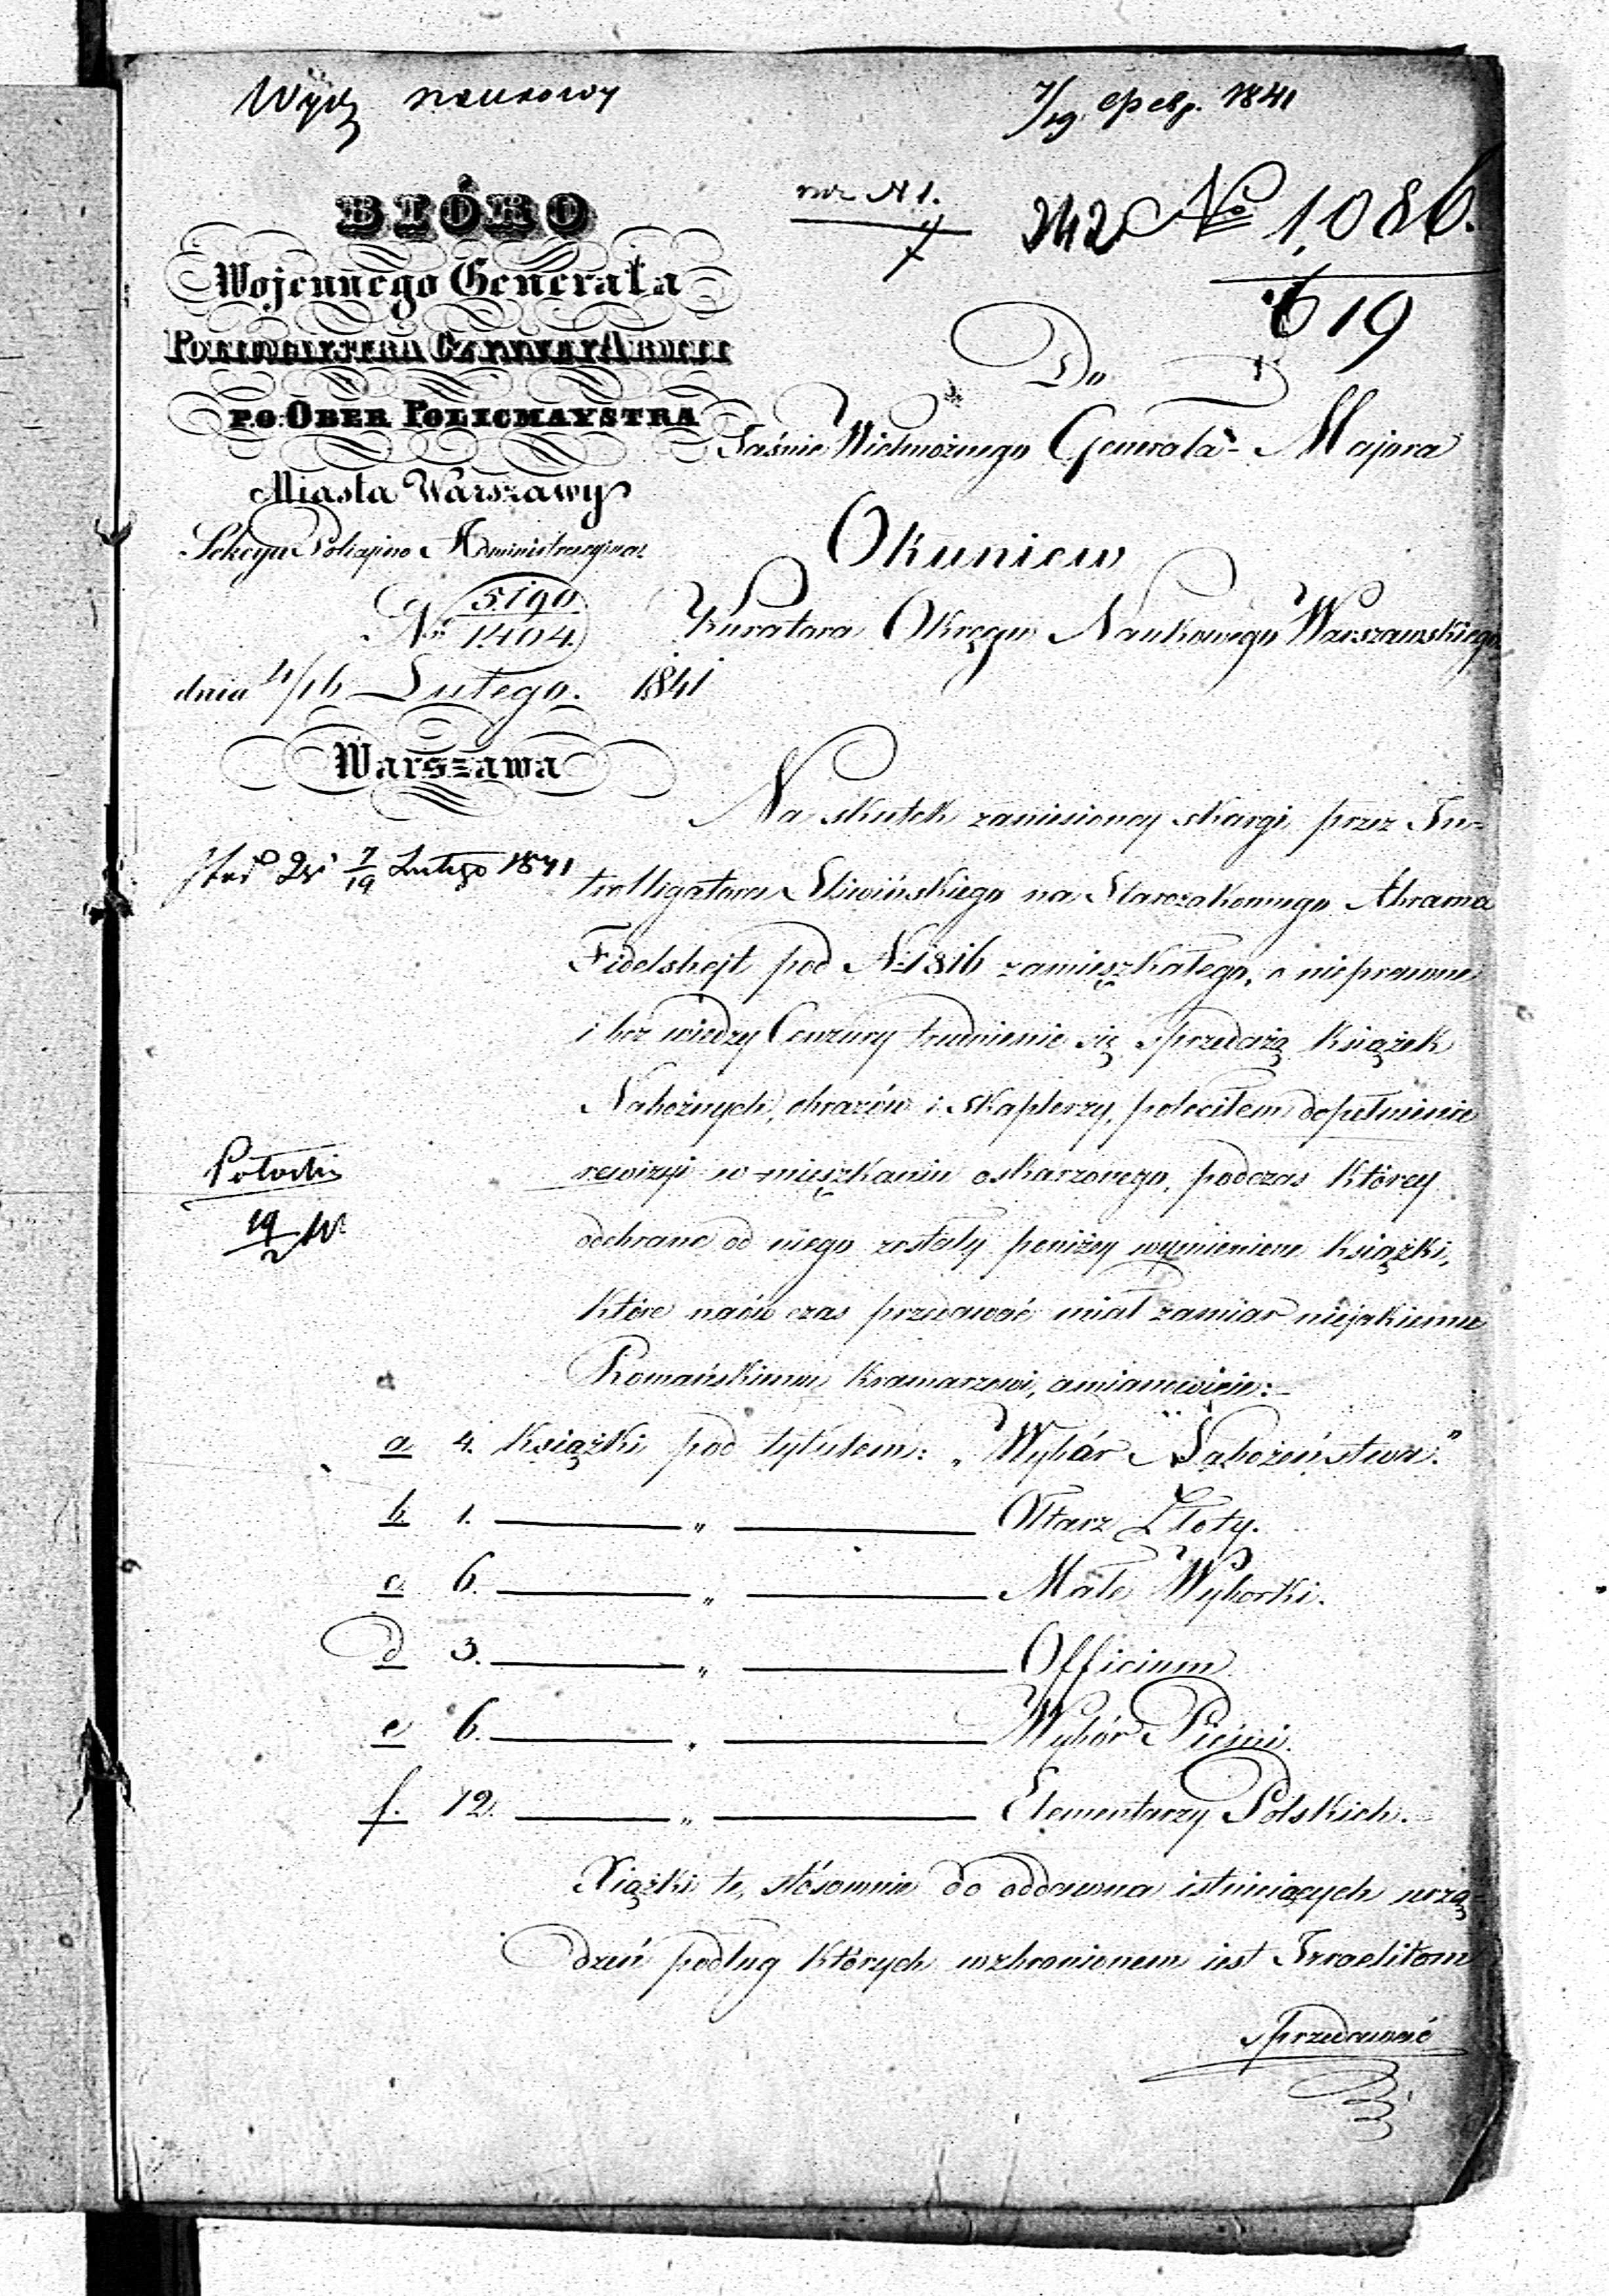 Wydz naukowy
7/19 февр. 1841
BIÓRO
Wojennego Generała
POLICMAYSTRA CZYNNEY ARMII
P.O. OBER POLICMAYSTRA
Miasta Warszawy
Sekcya Policyjno Administracyjna
№ 5,190
1404
dnia 4/16 Lutego. 1841
Warszawa
№ 1.
7
342 № 1,086.
619
Do
Jaśnie Wielmożnego Generała-Majora
Okuniew
Kuratora Okręgu Naukowego Warszawskiego
7/19 Lutego 1841
Potocki
19/2
Na skutek zaniesioney skargi przez In-
trolligatora Sliwińskiego na Starozakonnego Abrama
Fidelshejt pod № 1816 zamieszkałego, o nieprawne
i bez wiedzy Cenzury trudnienie się sprzedażą książek
Nabożnych, obrazów i skaplerzy, poleciłem dopełnienie
rewizyi w mieszkaniu oskarzonego, podczas którey
odebrane od niego zostały poniżey wymienione książki,
które naów czas przedawać miał zamiar niejakiemu
Romańskiemu Kramarzowi, amianowicie:-
a 4. Książki pod tytułem: „Wybór Nabożeństwa."
b 1. — „ — Ołtarz Złoty.
c 6. — „ — Małe Wyborki.
d 3. — „ — Officium
e 6. — „ — Wybór Pieśni.
f. 12. — „ — Elementarzy Polskich.
Xiążki te, stósownie do oddawna istnieiących urzą-
dzeń podług których wzbronionem iest Izraelitom
sprzedawać